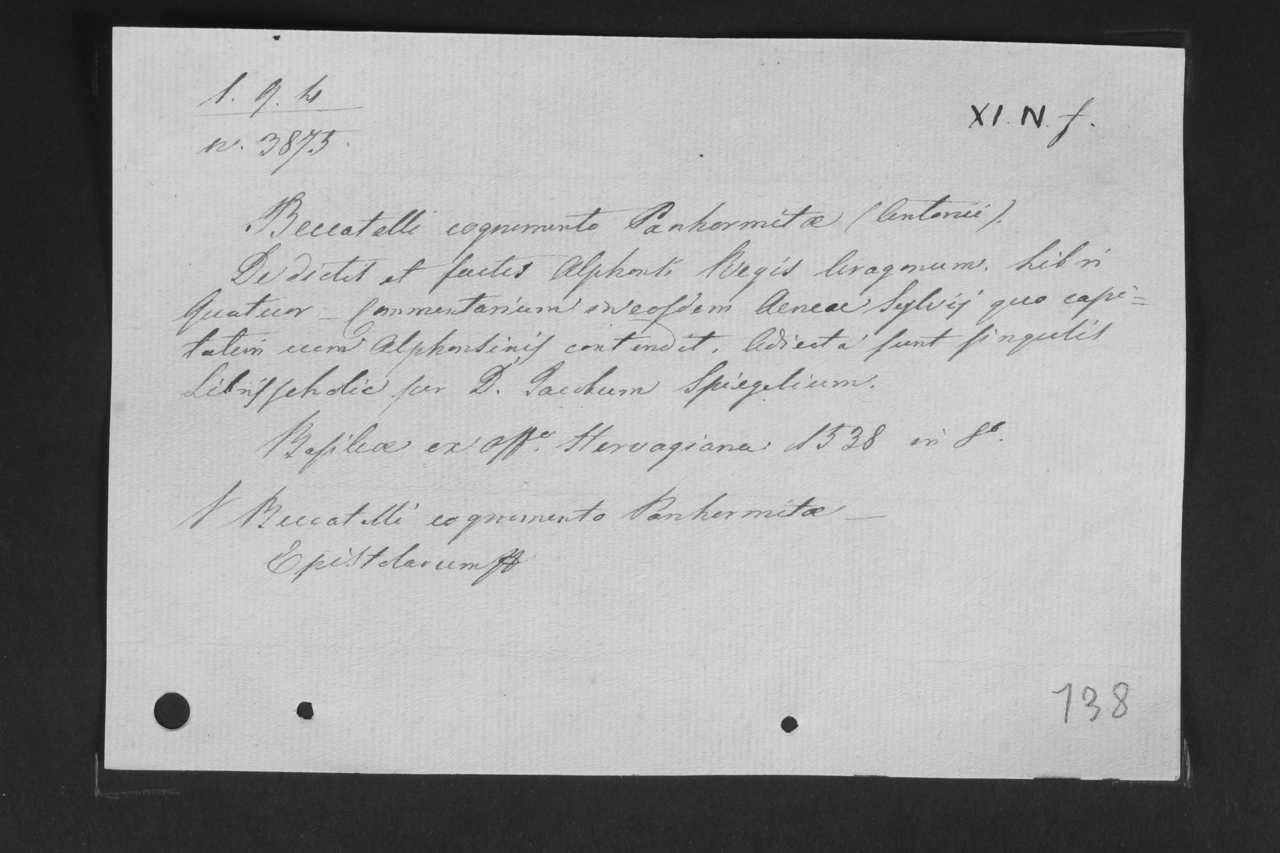 1. 9. 4
XI. N. f.
n. 3875.
Beccatelli cognomento Panhormitæ (Antonii).
De dictis et factis Alphonsi Regis Aragonum. Libri
Quatuor _ Commentarium in eosdem Aeneæ Sylvij quo capi=
tatim cum Alphonsinis contendit. Adiecta sunt singulis
Libris scholia per D. Jacobum Spiegelium.
Basileæ ex offa. Hervagiana 1538 in 8°.
V Beccatelli cognomento Panhormitæ _
Epistolarum
138